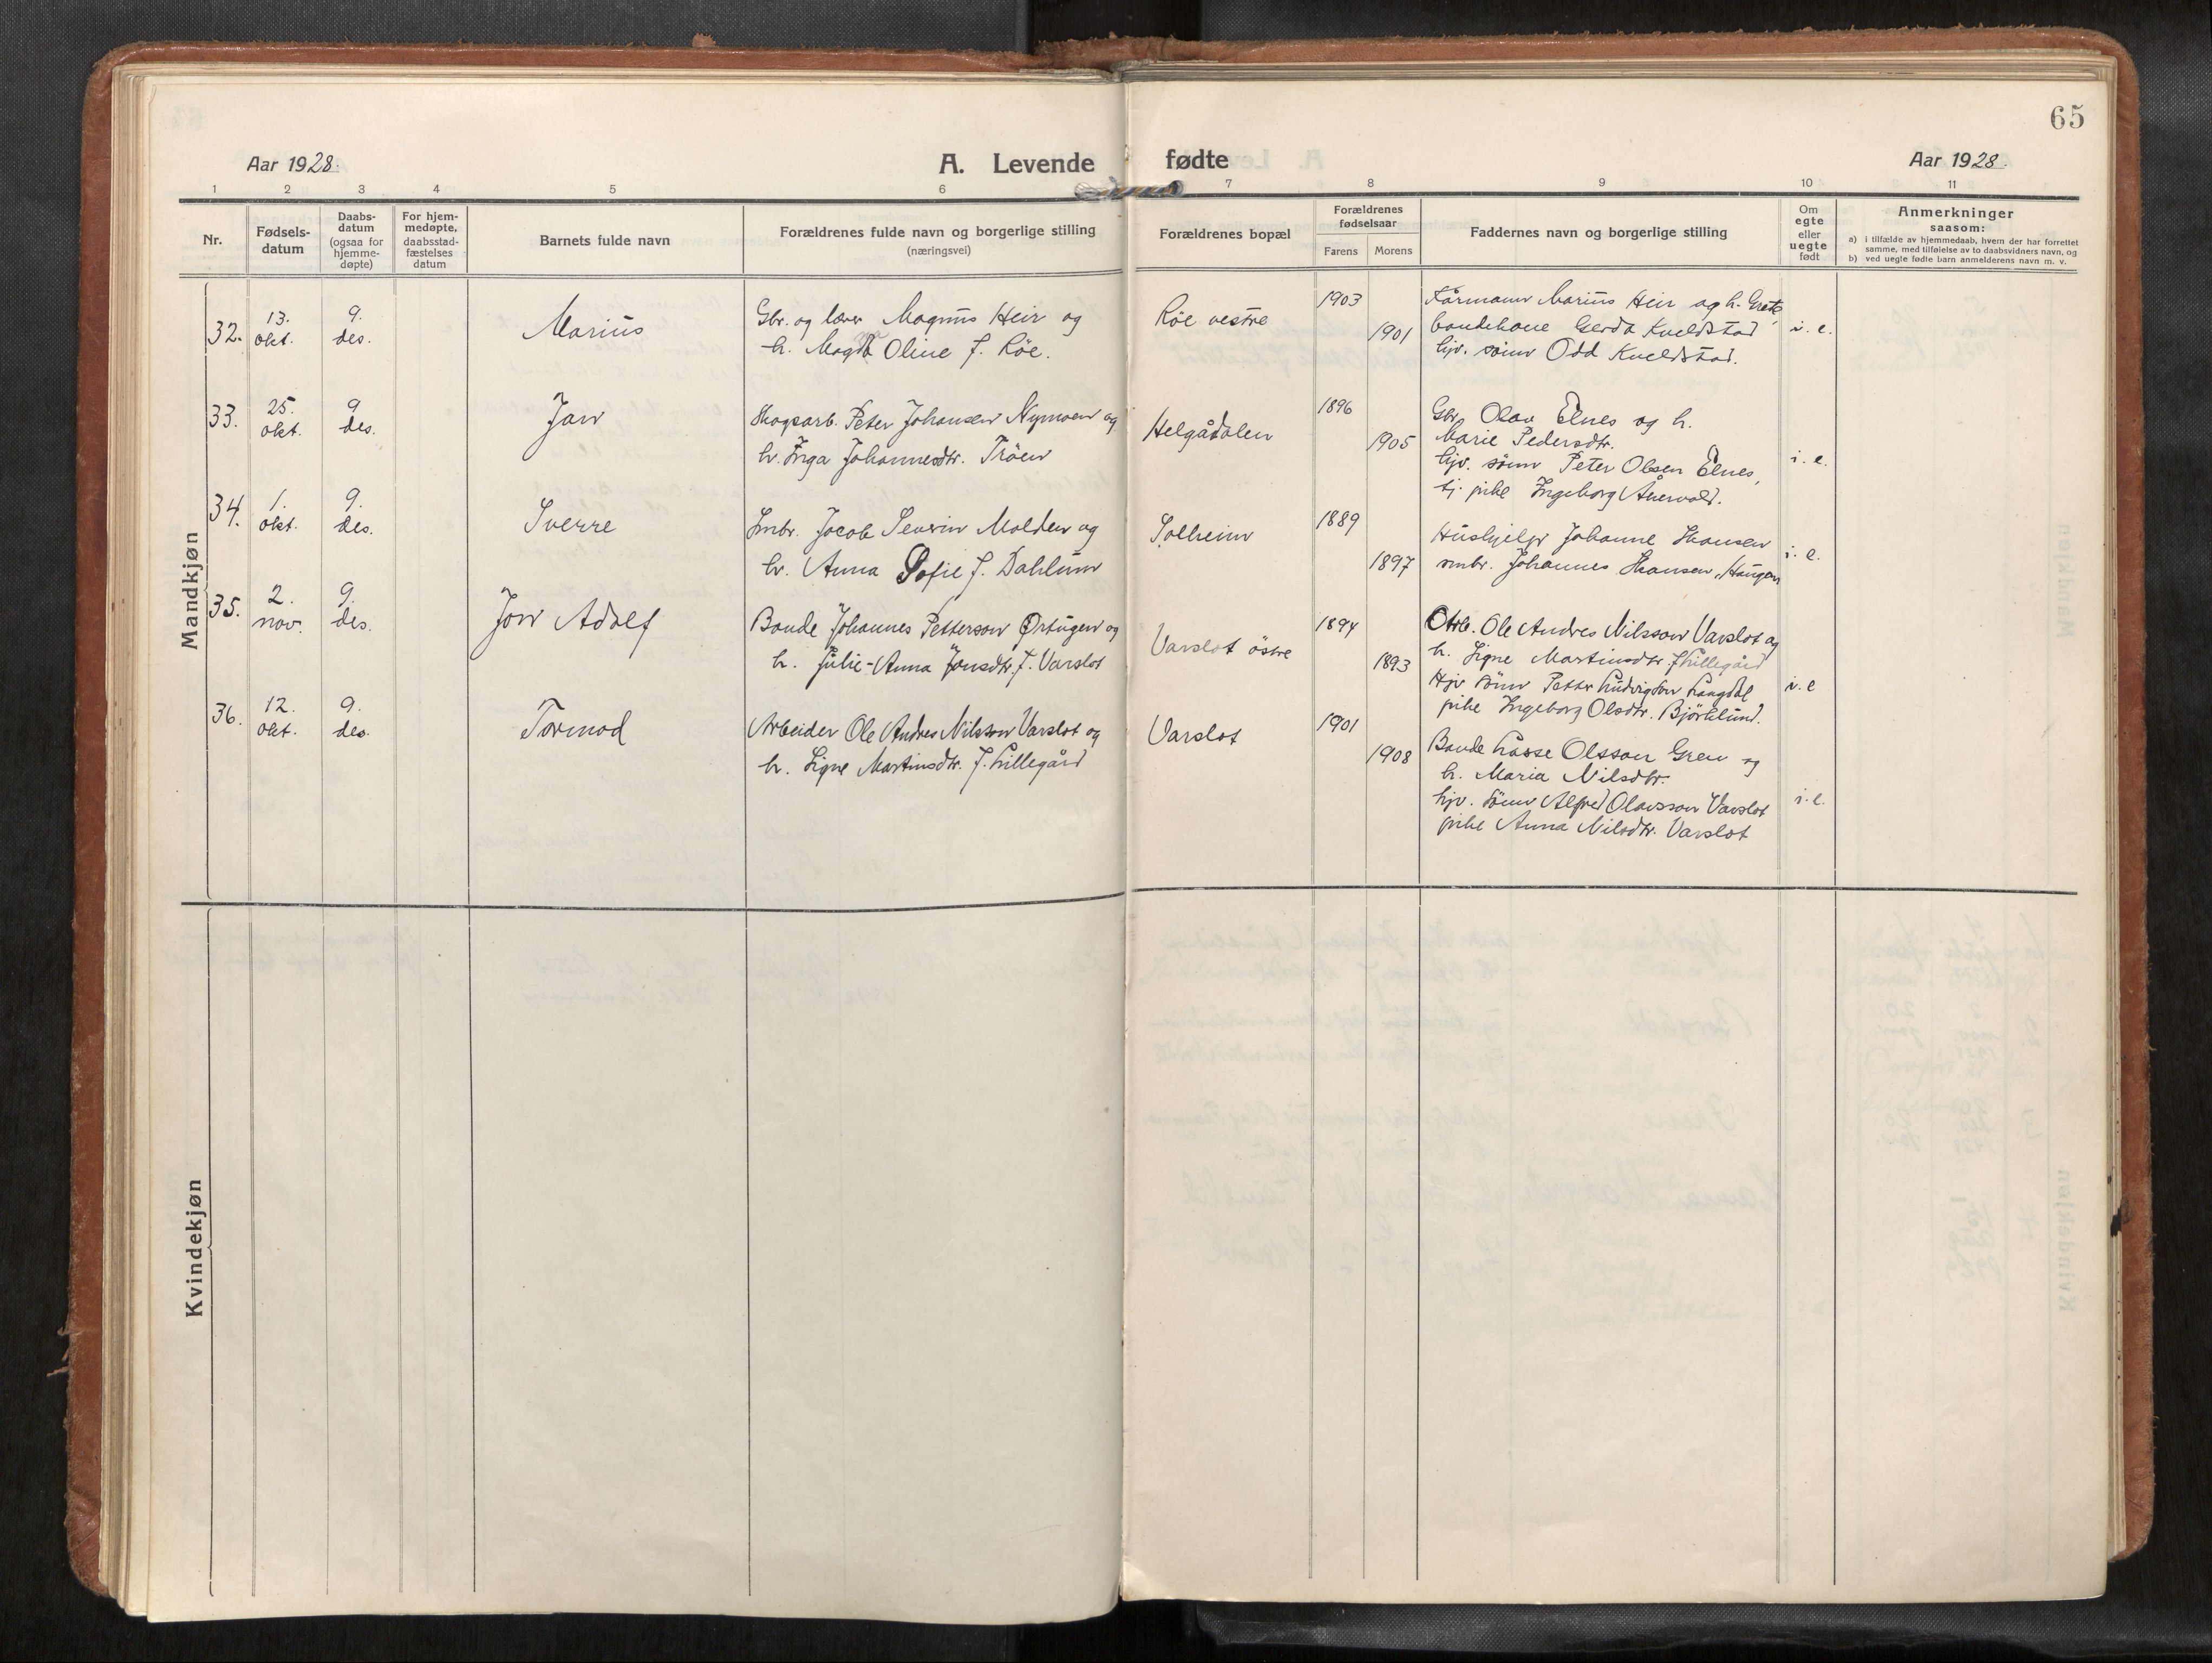 65
Aar 1928.
A. Levende fødte
Aar 1928.
1 2 3 4 5 6 7 8 9 10 11
Nr.
Fødsels-
datum
Daabs-
datum
(ogsaa for
hjemme-
døpte)
For hjem-
medøpte,
daabsstad-
fæstelses
datum
Barnets fulde navn
Forældrenes fulde navn og borgerlige stilling
(næringsvei)
Forældrenes bopæl
Forældrenes
fødselsaar
Farens Morens
Faddernes navn og borgerlige stilling
Om
egte
eller
uegte
født
Anmerkninger
saasom:
a) i tilfælde av hjemmedaab, hvem der har forrettet
samme, med tilføielse av to daabsvidners navn, og
b) ved uegte fødte barn anmelderens navn m. v.
Mandkjøn
32.
13.
okt.
9.
des.
Marius
Gbr. og lærer Magnus Heir og
h. Magda Oline f. Røe.
Röe vestre
1903
1901
Kårmann Marius Heir og h. Grete,
bondekone Gerda Kveldstad
hjv. sönn Odd Kveldstad.
i. e.
33.
25.
okt.
9
des.
Jan
Skogsarb. Peter Johansen Nymoen og
h. Inga Johannesdtr. Tröen
Helgådalen
1896
1905
Gbr. Olav Elnes og h.
Marie Pedersdtr.
hjv. sönn Peter Olsen Elnes,
tj. pike Ingeborg Åkervold.
i. e.
34.
1.
okt.
9.
des.
Sverre
Smbr. Jacob Severin Molden og
h. Anna Sofie f. Dahlum
Solheim
1889
1897
Hushjelp Johanne Hansen
smbr. Johannes Hansen, Haugen
i. e.
35.
2.
nov.
9.
des.
Jon Adolf
Bonde Johannes Petterson Ørtugen og
h. Julie-Anna Jonsdtr. f. Varslot
Varslot östre
1894
1893
Arb. Ole Andres Nilsson Varslot og
h. Signe Martinsdtr. f. Lillegård
Hjv sönn Petter Ludvigson Langdal
pike Ingeborg Olsdtr. Björklund.
i. e
36.
12.
okt.
9.
des.
Tormod
Arbeider Ole Andres Nilsson Varslot og
h. Signe Martinsdtr. f. Lillegård
Varslot
1901
1908
Bonde Lasse Olsson Gren og
h. Maria Nilsdtr.
hjv. sönn Alfred Olavsson Varslot
pike Anna Nilsdtr. Varslot
i. e.
Kvindekjøn